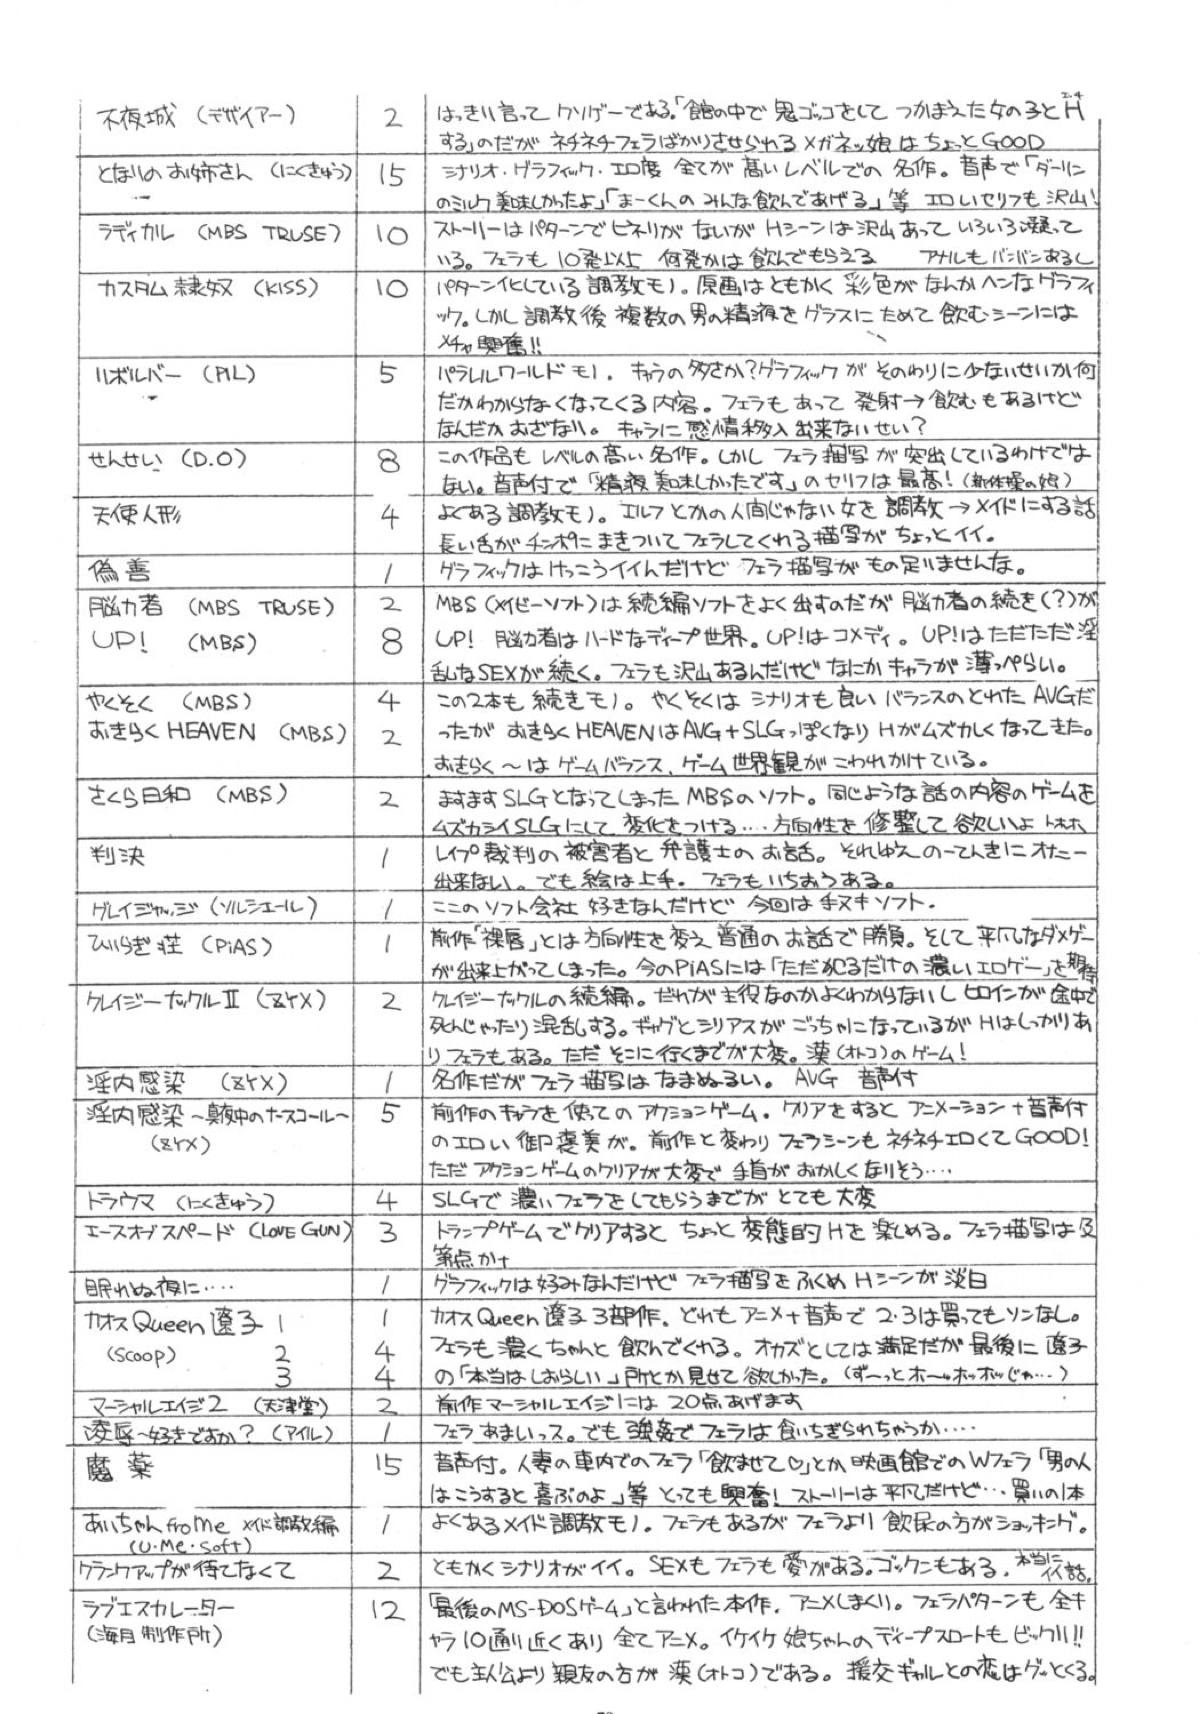 不夜城 (デザイアー)
2
はっきり言って クソゲーである。「館の中で 鬼ゴッコをして つかまえた女の子とH
する」のだが ネチネチフェラばかりさせられる メガネッ娘 は ちょっと GOOD
となりのお姉さん (にくきゅう)
15
シナリオ・グラフィック・エロ度 全てが 高いレベルでの 名作。音声で「ダーリン
のミルク 美味しかったよ」「まーくんの みんな飲んであげる」等 エロいセリフも 沢山!
ラディカル (MBS TRUSE)
10
ストーリーは パターンで ヒネリが ないが Hシーンは 沢山 あって いろいろ 凝って
いる。フェラも 10発以上 何発かは 飲んでもらえる アナルも バンバンあるし
カスタム隷奴 (KISS)
10
パターン化している 調教モノ。原画はともかく 彩色が なんか ヘンな グラフィ
ック。しかし 調教後 複数の 男の精液を グラスに ためて 飲むシーンには
メチャ興奮!!
リボルバー (PIL)
5
パラレルワールド モノ. キャラの 多さか?グラフィック が そのわりに 少ないせいか何
だかわからなくなってくる 内容。フェラも あって 発射→飲む もあるけど
なんだか おざなり。キャラに 感情移入 出来ないせい?
せんせい (D.O)
8
この作品も レベルの高い 名作。しかし フェラ描写 が 突出しているわけでは
ない。音声付で 「精液 美味しかったです」のセリフは 最高! (新体操の娘)
天使人形
4
よくある 調教モノ。エルフ とかの 人間じゃない 女を 調教→メイドにする話
長い舌が チンポにまきついて フェラしてくれる 描写が ちょっとイイ。
偽善
1
グラフィックは けっこうイイんだけど フェラ描写が もの足りませんな。
脳力者 (MBS TRUSE)
2
MBS (メイビーソフト)は 続編ソフトをよく 出すのだが 脳力者の続き(?)が
UP! (MBS)
8
UP! 脳力者は ハードな ディープ世界。UP!は コメディ。UP!は ただただ 淫
乱なSEXが 続く。フェラも 沢山あるんだけど なにか キャラが 薄っぺらい。
やくそく (MBS)
4
この2本も 続きモノ。やくそくは シナリオも 良い バランスの とれた AVGだ
おきらくHEAVEN (MBS)
2
ったが おきらくHEAVENは AVG+SLGっぽくなり Hが ムズカしく なってきた。
おきらく〜は ゲームバランス、ゲーム世界観が こわれかけている。
さくら日和 (MBS)
2
ますますSLGと なってしまった MBSのソフト。同じような 話の内容の ゲームを
ムズカシイSLGにして 変化をつける‥‥方向性を 修整して 欲しいよ トホホ
判決
1
レイプ裁判の 被害者と 弁護士の お話。それゆえ のーてんきに オナニー
出来ない。でも 絵は上手. フェラも いちおうある。
グレイジャッジ (ソルシエール)
1
ここのソフト会社 好きなんだけど 今回は 手ヌキソフト.
ひいらぎ荘 (PiAS)
1
前作「裸唇」とは 方向性を 変え 普通の お話で 勝負。そして 平凡なダメゲー
が 出来上がってしまった。今のPiASには「ただ犯るだけの濃いエロゲー」を期待
クレイジーナックルⅡ (ZYX)
2
クレイジーナックルの続編。だれが 主役なのか よくわからないし ヒロインが 途中で
死んじゃったり 混乱する。ギャグとシリアスが ごっちゃになっているが Hはしっかりあ
り フェラもある。ただ そこに行くまでが大変。漢(オトコ)のゲーム!
淫内感染 (ZYX)
1
名作だが フェラ描写は なまぬるい。 AVG 音声付
淫内感染〜真夜中のナースコール〜
(ZYX)
5
前作のキャラを 使っての アクションゲーム。クリアをすると アニメーション+音声付
のエロい 御褒美が。前作と変わり フェラシーンも ネチネチエロくて GOOD!
ただ アクションゲームの クリアが 大変で 手首が おかしくなりそう‥‥
トラウマ (にくきゅう)
4
SLGで 濃いフェラを してもらうまでが とても 大変
エースオブスペード (LOVE GUN)
3
トランプゲーム でクリアすると ちょっと 変態的Hを 楽しめる。フェラ描写は 及
第点かナ
眠れぬ夜に‥‥
1
グラフィックは 好みなんだけど フェラ描写を ふくめ Hシーンが 淡白
カオスQueen遼子 1
1
カオスQueen遼子3部作. どれも アニメ+音声で 2・3は 買っても ソンなし。
(SCOOP) 2
4
フェラも 濃く ちゃんと 飲んでくれる。オカズとしては 満足だが 最後に 遼子
3
4
の「本当は しおらしい」所とか 見せて 欲しかった。(ず〜っと ホ〜ッホッホッじゃ‥‥)
マーシャルエイジ2 (天津堂)
2
前作 マーシャルエイジには 20点あげます
凌辱〜好きですか? (アイル)
1
フェラ あまいっス。でも 強姦で フェラは 食いちぎられちゃうか‥‥
魔薬
15
音声付。人妻の 車内でのフェラ「飲ませて♡」とか 映画館での Wフェラ「男の人
は こうすると 喜ぶのよ」等 とっても 興奮! ストーリーは 平凡だけど‥‥買いの1本
あいちゃん fro me メイド調教編
(U・Me・Soft)
1
よくある メイド調教モノ。フェラも あるが フェラより 飲尿の方が ショッキング。
クランクアップが待てなくて
2
ともかく シナリオが イイ. SEXも フェラも 愛がある。ゴックンもある. 本当に
イイ話。
ラブエスカレーター
(海月製作所)
12
「最後のMS-DOSゲーム」と 言われた 本作. アニメしまくり。フェラパターンも 全キ
ャラ 10通り近くあり 全てアニメ。イケイケ 娘ちゃんの ディープスロートも ビックリ!!
でも 主人公より 親友の方が 漢(オトコ)である。援交ギャルとの 恋は グッとくる。